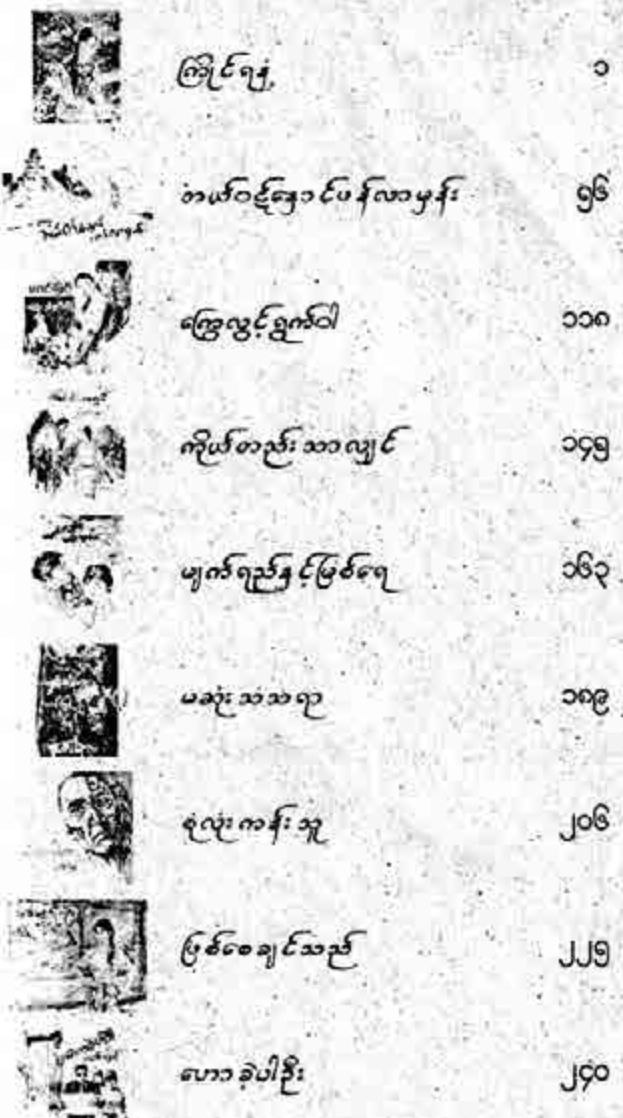 ကြိုင်ရနံ့ ၁
ဘယ်ဝဋ်နှောင်ဖန်လာမှန်း ၅၆
ကြွေလွင့်ရွက်ဝါ ၁၁၈
ကိုယ်တည်းသာလျှင် ၁၄၅
မျက်ရည်နှင့်မြစ်ရေ ၁၆၃
မဆုံးသံသရာ ၁၈၉
စုံလုံးကန်းသူ ၂၀၆
ဖြစ်စေချင်သည် ၂၂၅
ဟောခဲ့ပါဦး ၂၄၀